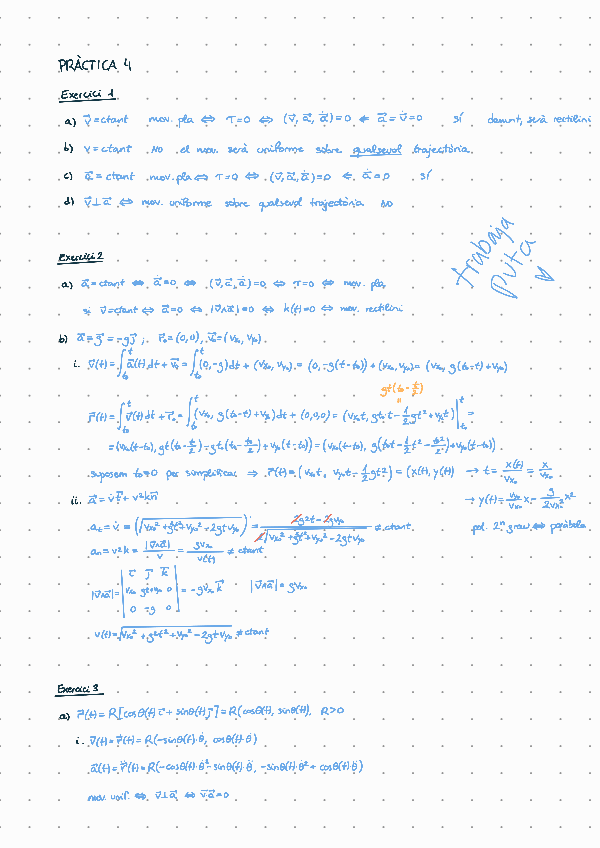 PRÀCTICA 4
Exercici 1
a) v⃗=ctant mov. pla ⇔ τ=0 ⇔ (v⃗, a⃗, ȧ⃗)=0 ⇐ a⃗=v̇⃗=0 sí damunt, serà rectilini
b) v=ctant NO el mov. serà uniforme sobre qualsevol trajectòria.
c) a⃗=ctant mov. pla ⇔ τ=0 ⇔ (v⃗, a⃗, ȧ⃗)=0 ⇐ ȧ⃗=0 sí.
d) v⃗⊥a⃗ ⇔ mov. uniforme sobre qualsevol trajectòria NO
trabaja
puta
Exercici 2
a) a⃗=ctant ⇔ ȧ⃗=0 ⇔ (v⃗, a⃗, ȧ⃗)=0 ⇔ τ=0 ⇔ mov. pla,
si v⃗=ctant ⇔ a⃗=0 ⇔ |v⃗∧a⃗|=0 ⇔ k(t)=0 ⇔ mov. rectilini
b) a⃗=g⃗=-gj⃗; r⃗₀=(0,0), v⃗₀=(vx₀, vy₀).
i. v⃗(t)=∫_{t₀}^{t} a⃗(t)dt + v⃗₀ = ∫_{t₀}^{t}(0,-g)dt + (vx₀, vy₀) = (0, -g(t-t₀)) + (vx₀, vy₀) = (vx₀, g(t₀-t)+vy₀)
gt(t₀-t/2)
r⃗(t)=∫_{t₀}^{t} v⃗(t)dt + r⃗₀ = ∫_{t₀}^{t}(vx₀, g(t₀-t)+vy₀)dt + (0,0,0) = (vx₀t, gt₀t-½gt²+vy₀t)|_{t₀}^{t} =
=(vx₀(t-t₀), gt(t₀-t/2)-gt₀(t₀-t₀/2)+vy₀(t-t₀)) = (vx₀(t-t₀), g(t₀t-½t²-t₀²/2)+vy₀(t-t₀)).
suposem t₀=0 per simplificar ⇒ r⃗(t)=(vx₀t, vy₀t-½gt²) = (x(t), y(t)) → t = x(t)/vx₀ = x/vx₀
ii. a⃗=v̇t⃗+v²kn⃗ → y(t)=vy₀/vx₀ x - g/2vx₀² x²
aₜ=v̇=(√(vx₀²+g²t²+vy₀²-2gtvy₀))˙ = (2g²t-2gvy₀)/(2√(vx₀²+g²t²+vy₀²-2gtvy₀)) ≠ ctant. pol. 2ⁿ grau ⇔ paràbola
aₙ=v²k=|v⃗∧a⃗|/v = gvx₀/v(t) ≠ ctant
|v⃗∧a⃗|=|i⃗ j⃗ k⃗
vx₀ -gt+vy₀ 0
0 -g 0| = -gvx₀k⃗ |v⃗∧a⃗|=gvx₀
v(t)=√(vx₀²+g²t²+vy₀²-2gtvy₀) ≠ ctant
Exercici 3
a) r⃗(t)=R[cosθ(t)i⃗+sinθ(t)j⃗]=R(cosθ(t), sinθ(t)), R>0
i. v⃗(t)=ṙ⃗(t)=R(-sinθ(t)·θ̇, cosθ(t)·θ̇)
a⃗(t)=r̈⃗(t)=R(-cosθ(t)·θ̇²-sinθ(t)·θ̈, -sinθ(t)·θ̇²+cosθ(t)·θ̈)
mov. unif. ⇔ v⃗⊥a⃗ ⇔ v⃗·a⃗=0